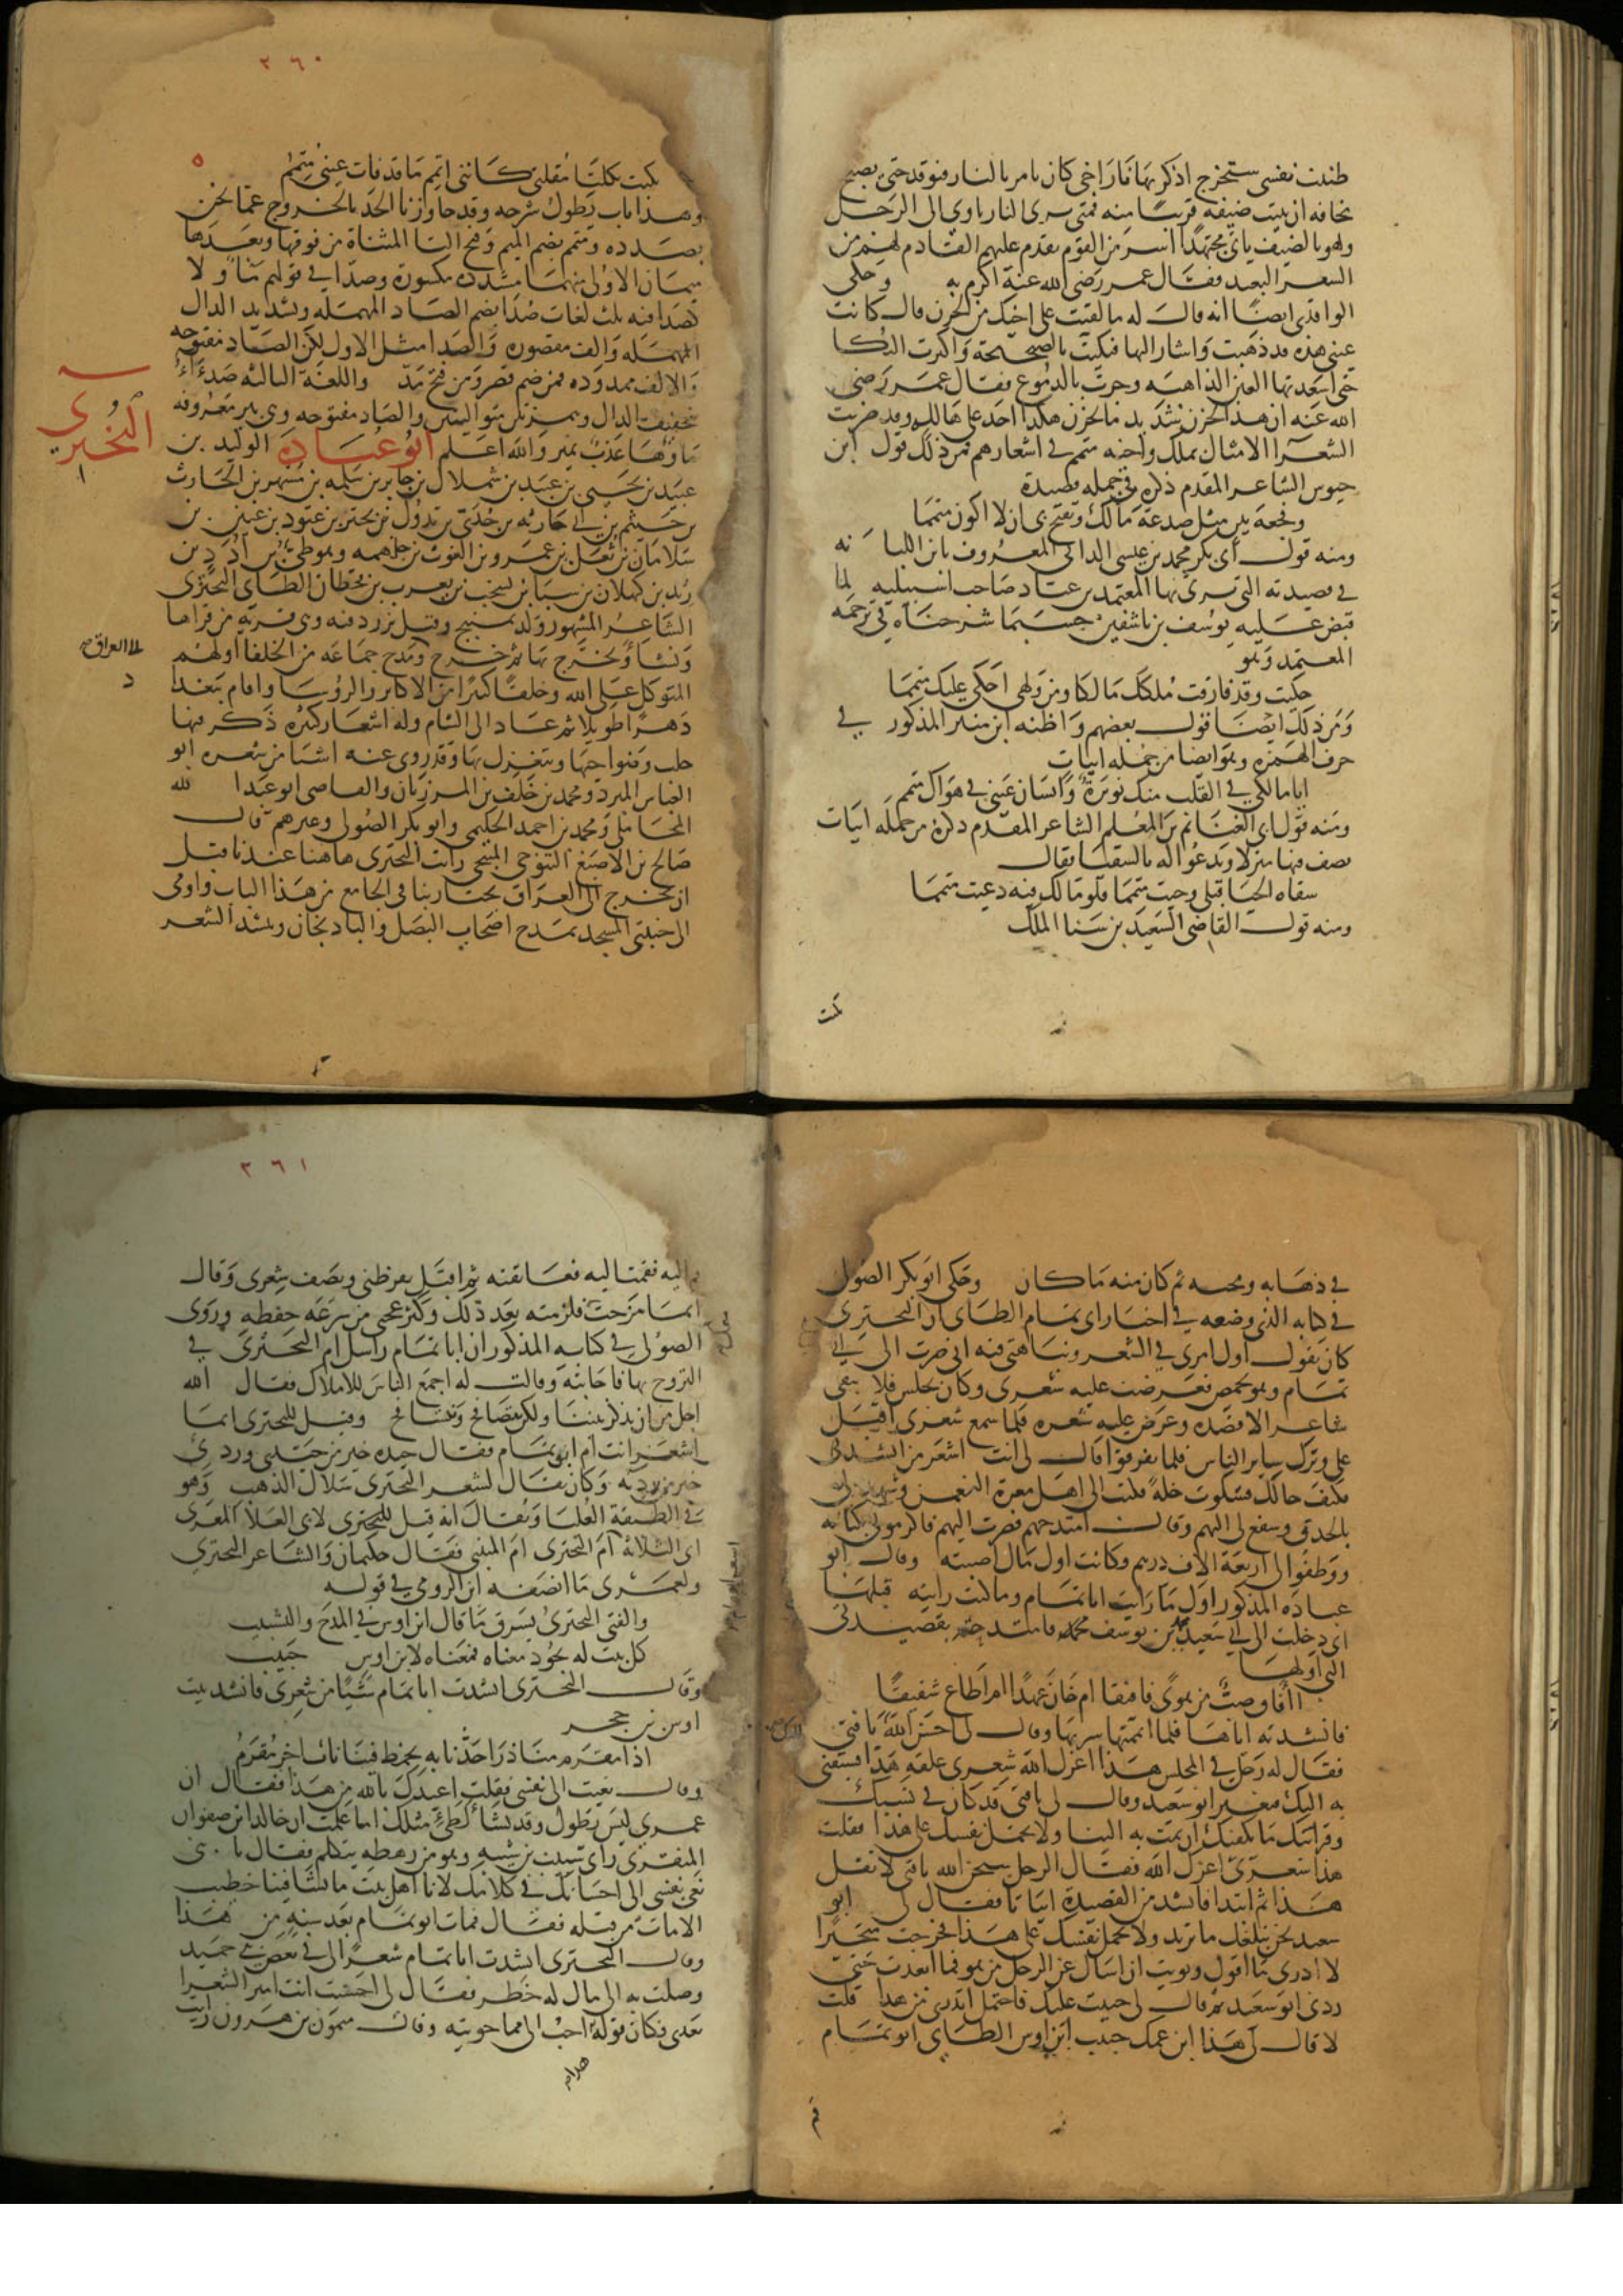 ظننت نفسي ستخرج اذكر بها نار اخي كان يامر بالنار فتوقد حتى يصبح
مخافة ان يبيت ضيفه قريبا منه فمتى يرى النار ياوي الى الرحل
ولهو بالضيف ياتي مجتهدا اسر من القوم يقدم عليهم القادم لهم من
السفر البعيد فقال عمر رضي الله عنه اكرم به وحكى
الواقدي ايضا انه قال له ما لقيت على اخيك من الحزن قال كانت
عيني هذه قد ذهبت واشار اليها فبكيت بالصحيحة واكثرت البكا
حتى اسعدتها العين الذاهبة وجرت بالدموع فقال عمر رضي
الله عنه ان هذا لحزن شديد ما يحزن هكذا احد على هالك وقد ضربت
الشعرآ الامثال بملك واخيه متمم في اشعارهم فمن ذلك قول ابن
حيوس الشاعر المقدم ذكره في جملة قصيدة
وفجعة بين مثل صرعة مالك ويقبح بي ان لا اكون متمما
ومنه قول ابي بكر محمد بن عيسى الداني المعروف بابن اللبانه
في قصيدته التي يرثي بها المعتمد بن عباد صاحب اشبيليه لما
قبض عليه يوسف بن تاشفين حسبما شرحناه في ترجمة
المعتمد وهو
حكيت وقد فارقت ملكك مالكا ومن ولهي احكي عليك متمما
ومن ذلك ايضا قول بعضهم واظنه ابن منير المذكور في
حرف الهمزه وهو ايضا من جملة ابيات
ايا مالكي في القلب منك نويرة وانسان عيني في هواك متمم
ومنه قول ابي الغنائم بن المعلم الشاعر المقدم ذكره من جملة ابيات
يصف فيها منزلا ويدعو له بالسقيا فقال
سقاه الحيا قبلي وجيت متمما فلو مالك فيه دعيت متمما
ومنه قول القاضي السعيد بن سنا الملك
بكيت
٣٦٠
٥
بكيت بكلتا مقلتي كانني اتمم ما قد فات عيني متمم
وهذا باب يطول شرحه وقد جاوزنا الحد بالخروج عما نحن
بصدده ومتمم بضم الميم وفتح التا المثناة من فوقها وبعدها
ميمان الاولى منهما مشددة مكسورة وصدا في قولهم ما ولا
كصدا فيه ثلث لغات صدا بضم الصاد المهمله وتشديد الدال
المهمله والف مقصورة والصدا مثل الاول لكن الصاد مفتوحه
والالف ممدوده فمن ضم قصر ومن فتح مد واللغة الثالثه صدءاء
بتخفيف الدال وهمزتين متواليتين والصاد مفتوحه وهي بير معروفه
ماؤها عذب نمير والله اعلم ابو عبادة الوليد بن
البحتري
عبيد بن يحيى بن عبيد بن شملال بن جابر بن سلمه بن مسهر بن الحارث
بن خيثم بن ابي حارثه بن جدي بن تدول بن بحتر بن عتود بن عنين بن
سلامان بن ثعل بن عمرو بن الغوث بن جلهمه وهو طيئ بن ادد بن
زيد بن كهلان بن سبا بن يشجب بن يعرب بن قحطان الطاي البحتري
الشاعر المشهور ولد بمنبج وقيل بزردفنه وهي قرية من قراها
ونشا وتخرج بها ثم خرج ومدح جماعة من الخلفا اولهم
الى العراق
المتوكل على الله وخلقا كثيرا من الاكابر والروسا واقام ببغداد
دهرا طويلا ثم عاد الى الشام وله اشعار كثيره ذكر فيها
حلب وضواحيها ويتغزل بها وقد روى عنه اشيا من شعره ابو
العباس المبرد ومحمد بن خلف بن المرزبان والقاضي ابو عبد الله
المحاملي ومحمد بن احمد الحكيمي وابو بكر الصولي وغيرهم قال
صالح بن الاصبغ التنوخي المنبجي رايت البحتري هاهنا عندنا قبل
ان يخرج الى العراق يجتاز بنا في الجامع من هذا الباب واومى
الى جنبتي المسجد يمدح اصحاب البصل والبادنجان وينشد الشعر
في ذهابه ومجيه ثم كان منه ما كان وحكى ابو بكر الصولي
في كتابه الذي وضعه في اخبار ابي تمام الطاي ان البحتري
كان يقول اول امري في الشعر ونباهتي فيه اني صرت الى ابي
تمام وهو بحمص فعرضت عليه شعري وكان يجلس فلا يبقى
شاعر الا قصده وعرض عليه شعره فلما سمع شعري اقبل
علي وترك ساير الناس فلما تفرقوا قال لي انت اشعر من انشدني
فكيف حالك فشكوت خلة فكتب الى اهل معرة النعمن وشهد لي
بالحذق وشفع لي اليهم وقال امتدحهم فصرت اليهم فاكرموني بكتابه
ووظفوا لي اربعة الاف درهم وكانت اول مال اصبته وقال ابو
عباده المذكور اول ما رايت ابا تمام وما كنت رايته قبلها
اني دخلت الى ابي سعيد محمد بن يوسف فامتدحته بقصيدتي
التي اولها
اافاق صب من هوى فافيقا ام خان عهدا ام اطاع شفيقا
فانشدته اياها فلما اتممتها سر بها وقال لي احسن الله يا فتى
فقال له رجل في المجلس هذا اعزك الله شعري علقه هذا فسبقني
به اليك فتغير ابو سعيد وقال لي يا فتى قد كان في نسبك
وقرابتك ما يكفيك ان تمت به الينا ولا تحمل نفسك على هذا فقلت
هذا شعري اعزك الله فقال الرجل سبحن الله يا فتى لا تقل
هذا ثم ابتدا فانشد من القصيدة ابياتا فقال لي ابو
سعيد نحن نبلغك ما تريد ولا تحمل نفسك على هذا فخرجت متحيرا
لا ادري ما اقول ونويت ان اسال عن الرجل من هو فما ابعدت حتى
ردني ابو سعيد ثم قال لي جنيت عليك فاحتمل اتدري من هذا قلت
لا قال لي هذا ابن عمك حبيب ابن اوس الطاي ابو تمام
قم
٣٦١
اليه فقمت اليه فعانقته ثم اقبل يقرظني ويصف شعري وقال
انما مزحت فلزمته بعد ذلك وكثر عجبي من سرعة حفظه وروى
الصولي في كتابه المذكور ان ابا تمام راسل ام البحتري في
التزوج بها فاجابته وقالت له اجمع الناس للاملاك فقال الله
اجل من ان يذكر بيننا ولكن نتصافح ونتسافح وقيل للبحتري ايما
اشعر انت ام ابو تمام فقال جيده خير من جيدي ورديئ
خير من رديه وكان يقال لشعر البحتري سلاسل الذهب وهو
في الطبقة العليا ويقال انه قيل لابي العلا المعري
اي الثلاثة ام البحتري ام المتنبي فقال حكيمان والشاعر البحتري
ولعمري ما انصفه ابن الرومي في قوله
والفتى البحتري يسرق ما قال ابن اوس في المدح والتشبيب
كل بيت له يجود معناه فمعناه لابن اوس حبيب
وقال البحتري انشدت ابا تمام شيئا من شعري فانشد بيت
اوس بن حجر
اذا مقرم منا ذرا حد نابه تخمط فينا ناب اخر مقرم
وقال نعيت الي نفسي فقلت اعيذك بالله من هذا فقال ان
عمري ليس يطول وقد نشا لطيئ مثلك اما علمت ان خالد ابن صفوان
المنقري راى شبيب بن شيبه وهو من رهطه يتكلم فقال يا بني
نعى نفسي الي احسانك في كلامك لانا اهل بيت ما نشا فينا خطيب
الا مات من قبله فقال فمات ابو تمام بعد سنة من هذا
وقال البحتري انشدت ابا تمام شعرا لي في بعض بني حميد
وصلت به الى مال له خطر فقال لي احسنت انت امير الشعرا
بعدي فكان قوله احب الي مما حويته وقال ميمون بن هرون رايت